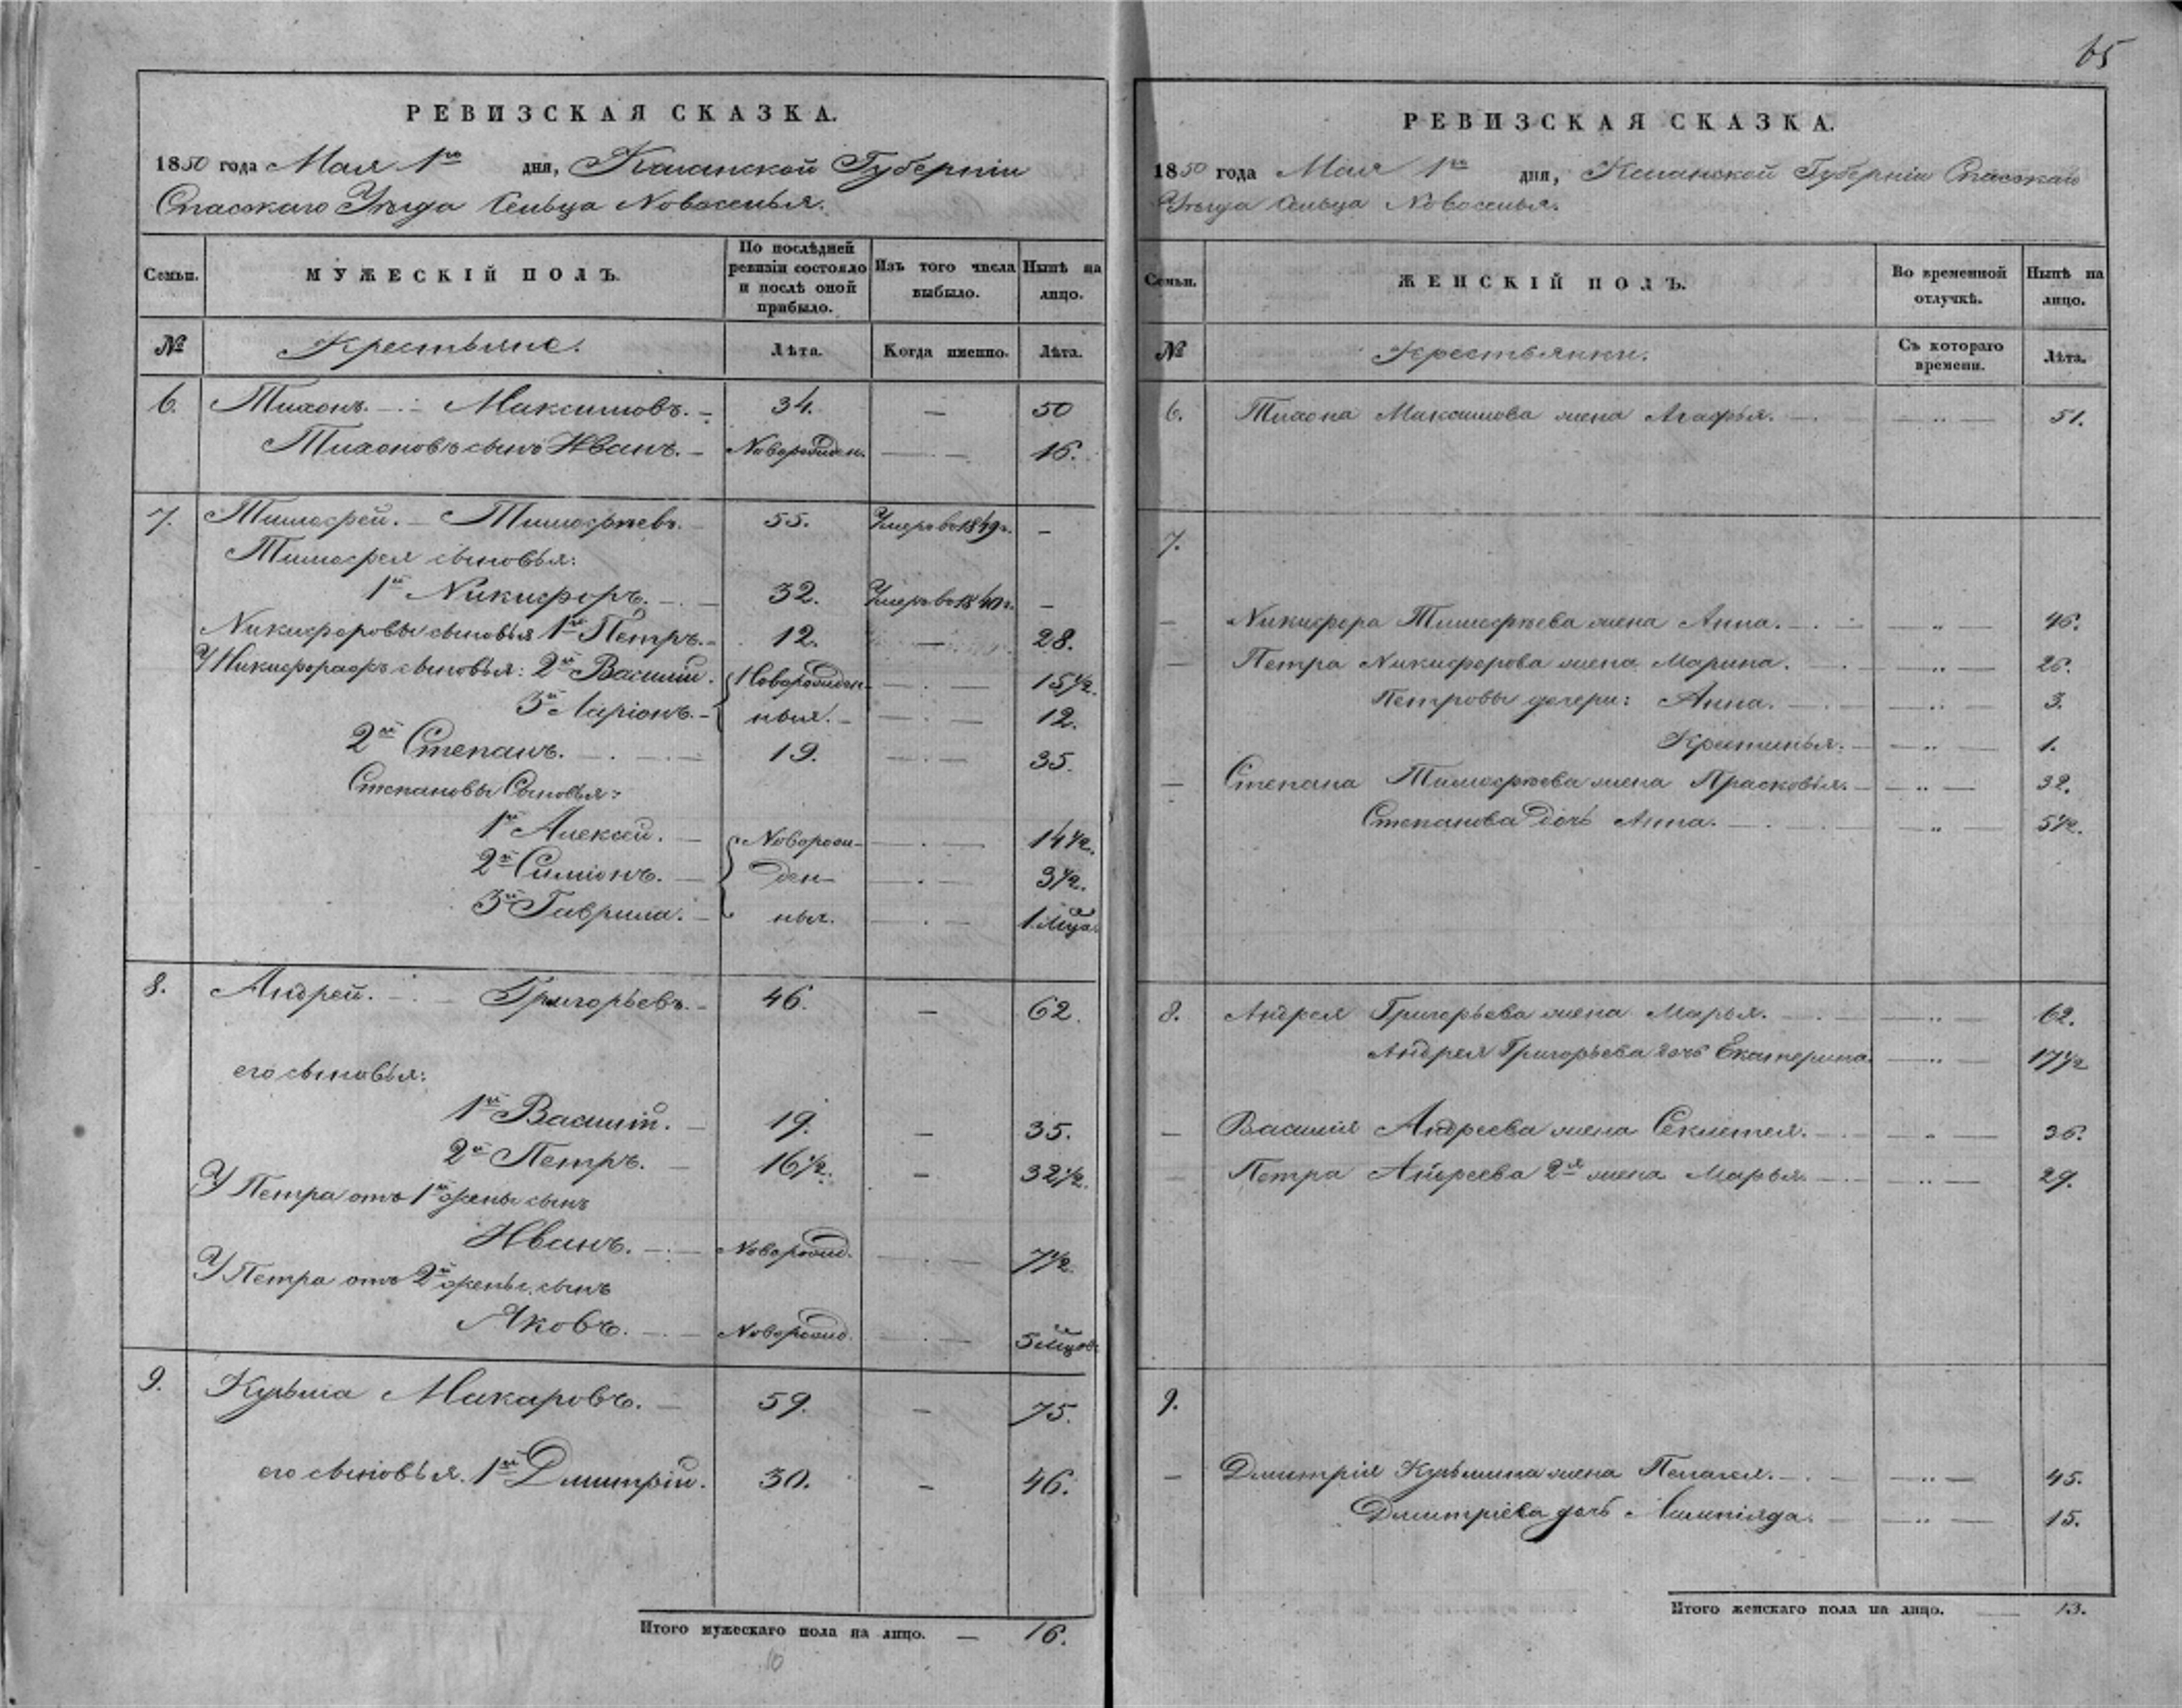 65
РЕВИЗСКАЯ СКАЗКА.
1850 года Мая 1го дня, Казанской Губерніи
Спасскаго Уѣзда Сельца Новоселья.
Семьи.
МУЖЕСКІЙ ПОЛЪ.
По послѣдней ревизіи состояло и послѣ оной прибыло.
Изъ того числа выбыло.
Нынѣ на лицо.
№
Крестьяне.
Лѣта.
Когда именно.
Лѣта.
6. Тихонъ. — Максимовъ. — 34. — 50
Тихоновъ сынъ Иванъ. — Новорожден. — 16.
7. Тимофей. — Тимофѣевъ. 55. Умеръ въ 1849 г. —
Тимофея сыновья:
1й Никифоръ. — 32. Умеръ въ 1840 г. —
Никифоровы сыновья 1й Петръ. — 12. — 28.
У Никифора сыновья: 2й Василій. Новорожден- — 15 1/2.
3й Ларіонъ. — ныя. — 12.
2й Степанъ. — 19. — 35.
Степановы Сыновья:
1й Алексей. — Новорож- — 14 1/2.
2й Симіонъ. — ден- — 3 1/2.
3й Гаврила. — ныя. — 1 Мца.
8. Андрей. — Григорьевъ. — 46. — 62.
его сыновья:
1й Василій. — 19. — 35.
2й Петръ. — 16 1/2. — 32 1/2.
У Петра отъ 1й жены сынъ
Иванъ. — Новорожд. — 7 1/2.
У Петра отъ 2й жены сынъ
Яковъ. — Новорожд. — 5 мцов.
9. Кузьма Макаровъ. — 59. — 75.
его сыновья. 1й Дмитрій. 30. — 46.
Итого мужескаго пола на лицо. — 16.
10
РЕВИЗСКАЯ СКАЗКА.
1850 года Мая 1го дня, Казанской Губерніи Спасскаго
Уѣзда Сельца Новоселья.
Семьи.
ЖЕНСКІЙ ПОЛЪ.
Во временной отлучкѣ.
Нынѣ на лицо.
№
Крестьянки.
Съ котораго времени.
Лѣта.
6. Тихона Максимова жена Агафья. — 51.
7.
— Никифора Тимофѣева жена Анна. — 46.
— Петра Никифорова жена Марина. — 26.
Петровы дочери: Анна. — 3.
Кристинья. — 1.
— Степана Тимофѣева жена Прасковья. — 32.
Степанова дочь Анна. — 5 1/2.
8. Андрея Григорьева жена Марья. — 62.
Андрея Григорьева дочь Екатерина. — 17 1/2
— Василія Андреева жена Секлетея. — 36.
— Петра Андреева 2я жена Марья. — 29.
9.
— Дмитрія Кузьмина жена Пелагея. — 45.
Дмитріева дочь Алимпіяда. — 15.
Итого женскаго пола на лицо. — 13.